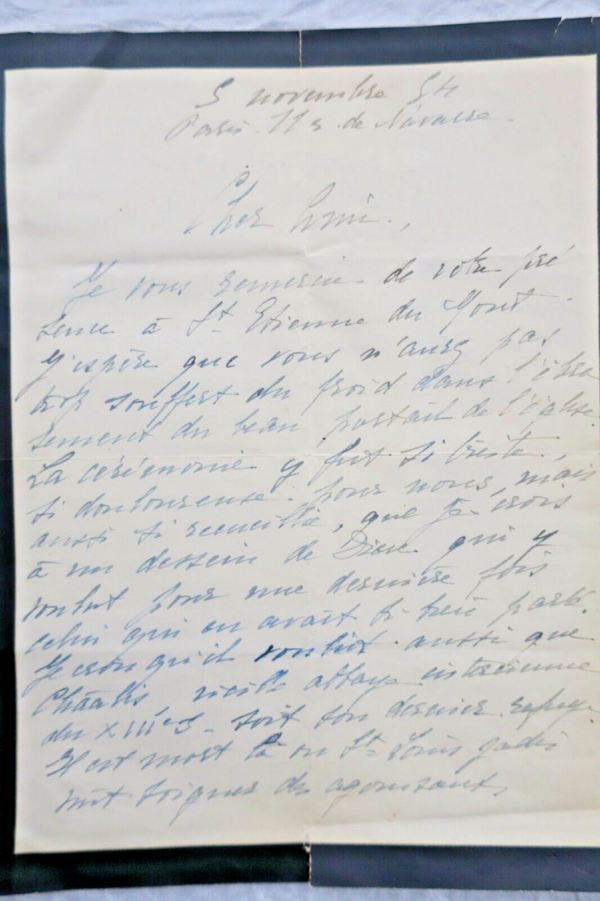 5 novembre 54
Paris. 11 r. de Navarre
Cher Ami,
Je vous remercie de votre pré
sence à St. Etienne du Mont.
J'espère que vous n'aurez pas
trop souffert du froid dans l'ébra
sement du beau portail de l'église.
La cérémonie y fut si triste,
si douloureuse pour nous, mais
aussi si recueillie, que je crois
à un dessein de Dieu qui y
voulut pour une dernière fois
celui qui en avait si bien parlé.
Je crois qu'il voulut aussi que
Châalis, vieille abbaye cistercienne
du XIIIe s. soit son dernier refuge.
Il est mort là où St Louis jadis
vint soigner des agonisants,